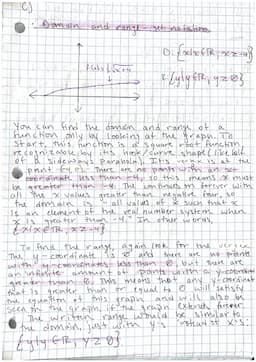 C)
Domain and range - set notation
D: {x|x∈ℝ, x≥-4}
f(x)=√x+4
R: {y|y∈ℝ, y≥0}
You can find the domain and range of a
function only by looking at the graph. To
start, this function is a square root function
recognizable by its line/curve shape (like half
of a sideways parabola). It's vertex is at the
point (-4,0). There are no points with an
coordinate less than -4, so this means x must
be greater than -4. The continues on forever with
all the x values greater than negative four, so
the domain is "all values of x such that x
is an element of the real number system when
x is greater than -4." In other words,
{x|x∈ℝ, x≥-4}
To find the range, again look for the vertex.
The y-coordinate is 0 and there are no points
with y-coordinates less than 0, but there are
an infinite amount of points with a y-coordinate
greater than 0. This means that any y-coordinate
that is greater than or equal to 0 will satisfy
the equation of this graph and will also be
seen on the graph if the graph extends forever.
The written range would be similar to
the domain, just with y's instead of x's:
{y|y∈ℝ, y≥0}